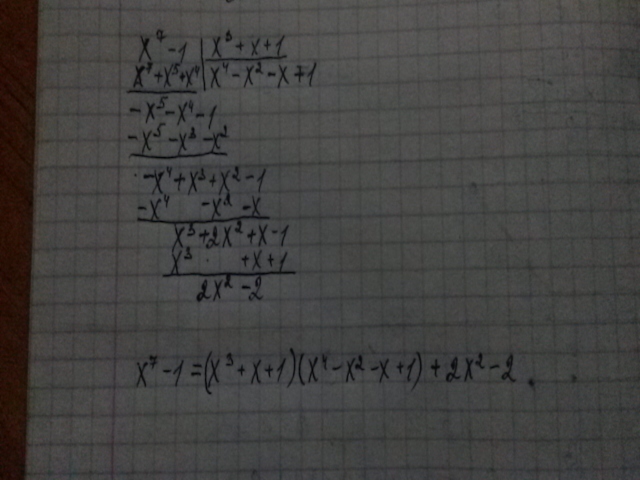 x⁷ - 1 | x³ + x + 1
x⁷ + x⁵ + x⁴ | x⁴ - x² - x + 1
- x⁵ - x⁴ - 1
- x⁵ - x³ - x²
- x⁴ + x³ + x² - 1
- x⁴ - x² - x
x³ + 2x² + x - 1
x³ + x + 1
2x² - 2
x⁷ - 1 = (x³ + x + 1)(x⁴ - x² - x + 1) + 2x² - 2.